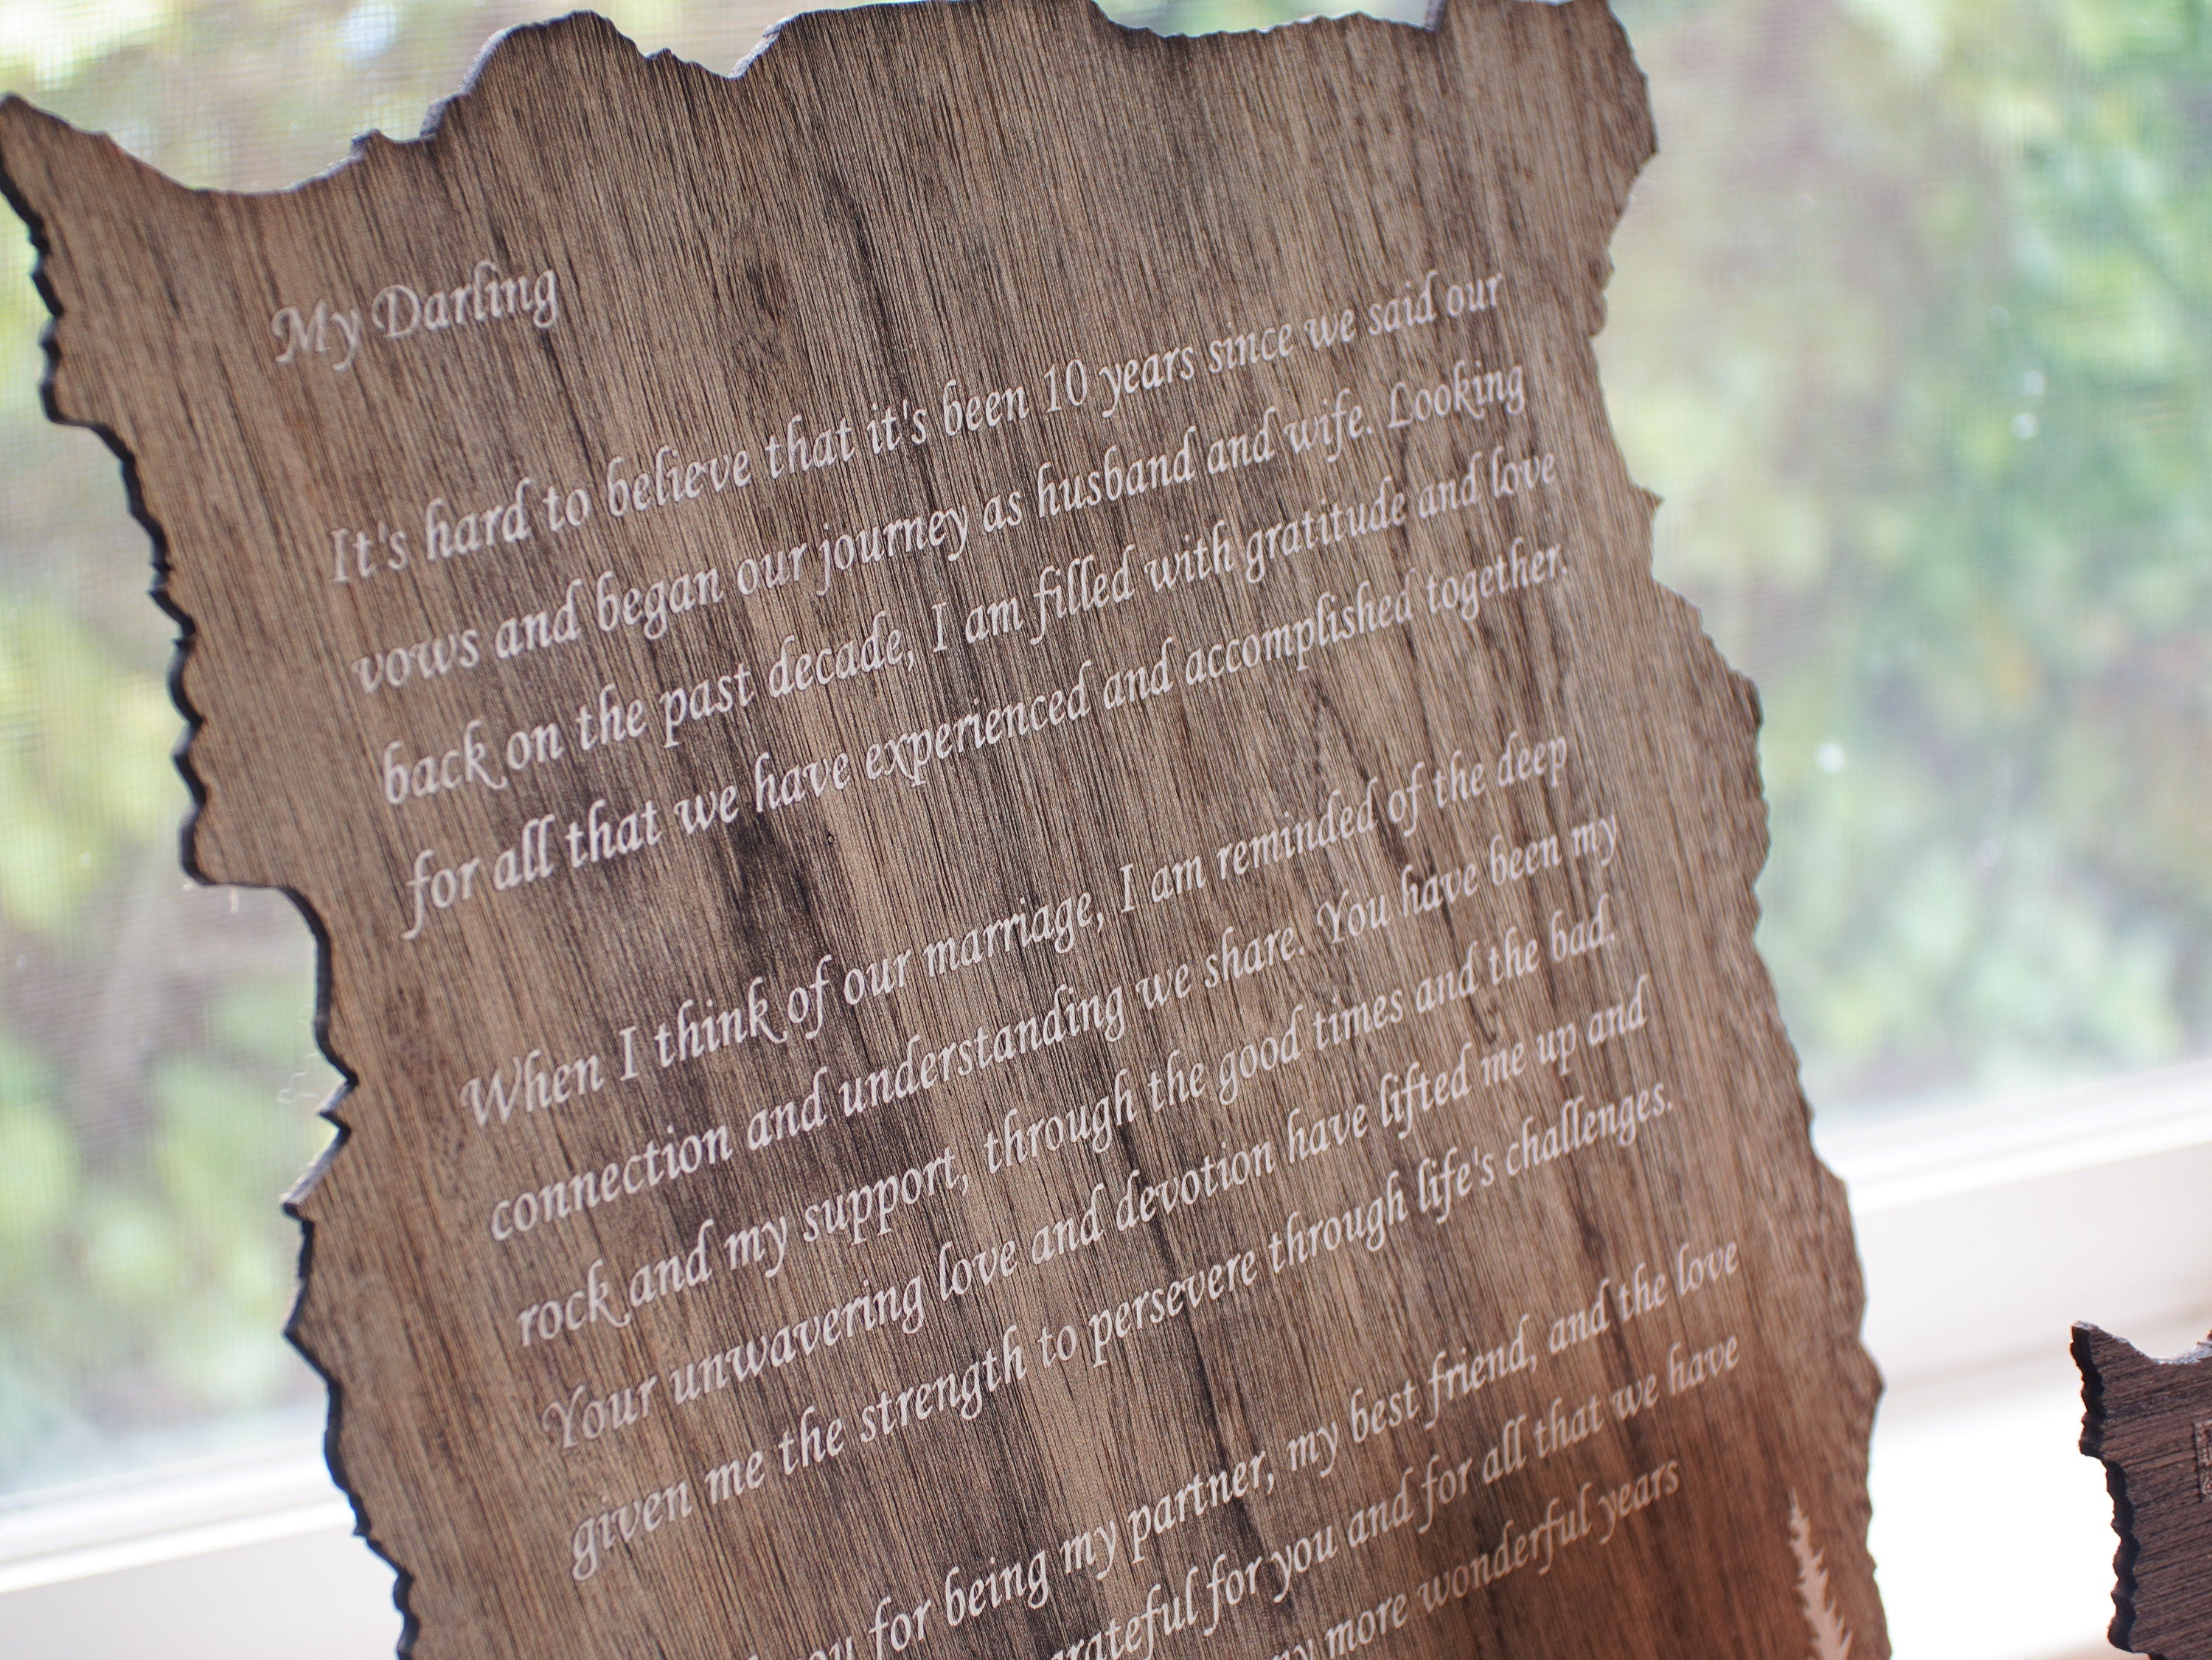 My Darling
It's hard to believe that it's been 10 years since we said our
vows and began our journey as husband and wife. Looking
back on the past decade, I am filled with gratitude and love
for all that we have experienced and accomplished together.
When I think of our marriage, I am reminded of the deep
connection and understanding we share. You have been my
rock and my support, through the good times and the bad.
Your unwavering love and devotion have lifted me up and
given me the strength to persevere through life's challenges.
for being my partner, my best friend, and the love
for you and for all that we have
more wonderful years